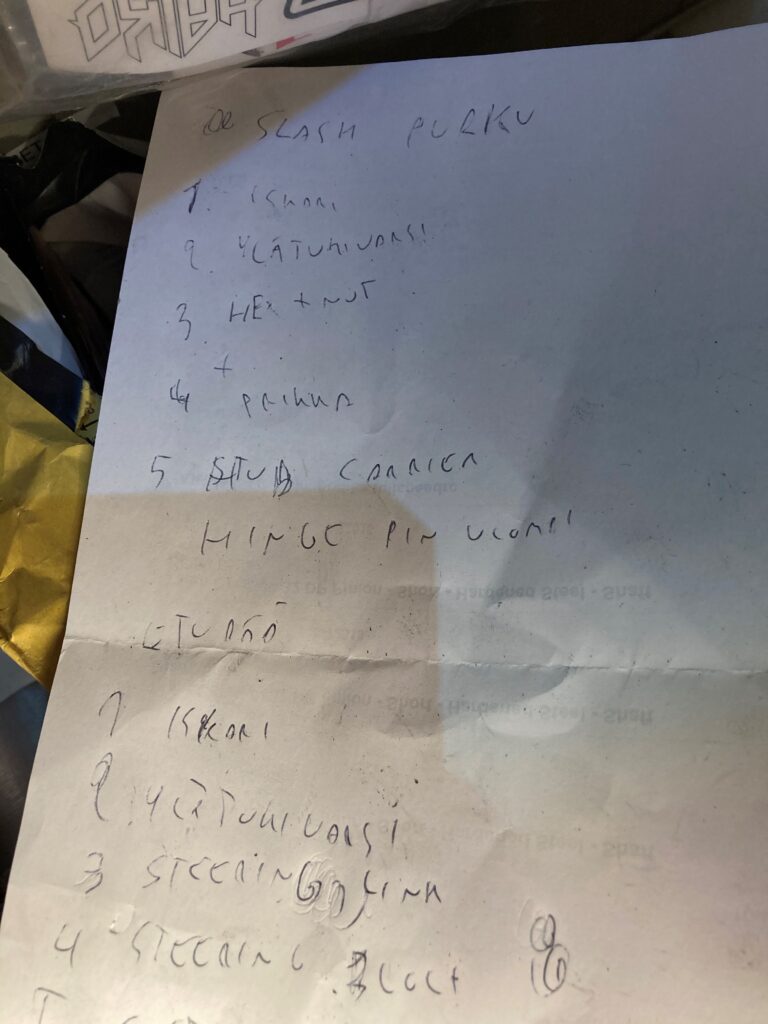 SLASH PURKU
1. ISKARI
2. YLÄTUKIVARSI
3 HEX + NUT
+
4 PRIKKA
5 STUB CARRIER
HINGE PIN ULOMPI
ETUPÄÄ
1 ISKARI
2 YLÄTUKIVARSI
3 STEERING LINK
4 STEERING BLOCK